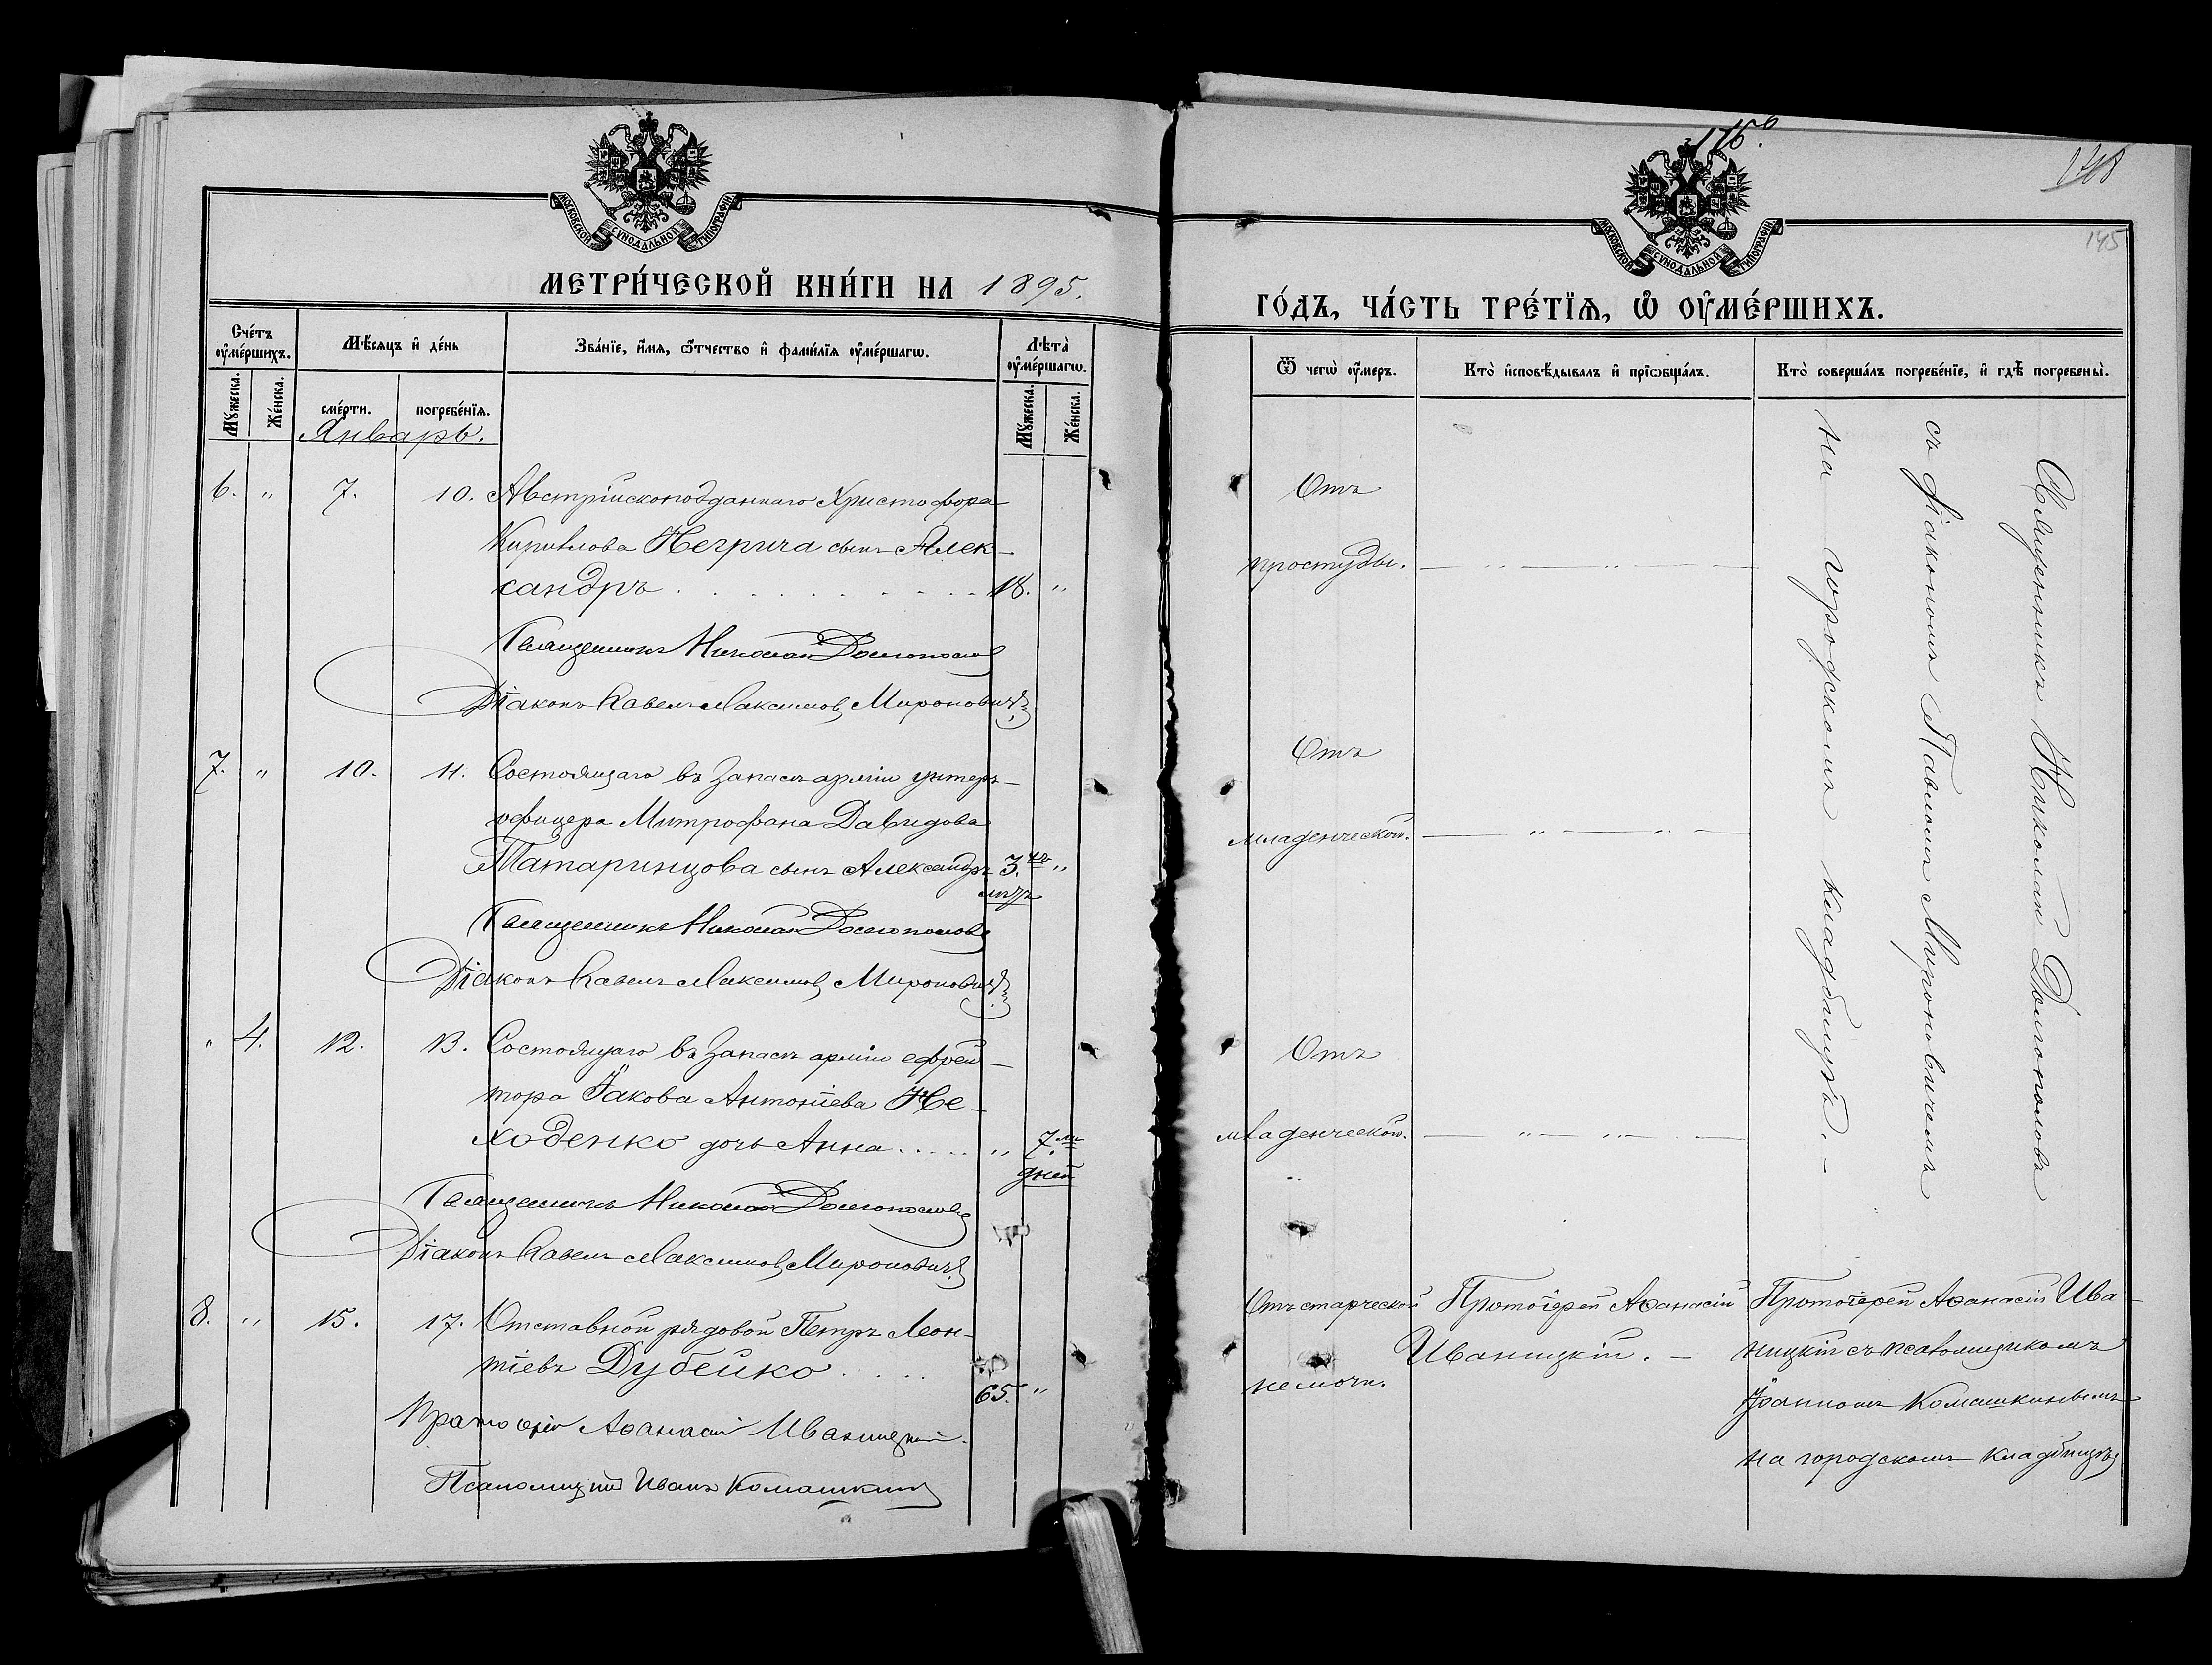 МОСКОВСКОЙ СУНОДАЛЬНОЙ ТИПОГРАФІИ
МЕТРИ́ЧЕСКОЙ КНИ́ГИ НА 1895.
Сче́тъ ᲂу҆ме́ршихъ.
Мѣ́сяцъ и҆ де́нь
Зва́нїе, и҆́мя, ѿтчество и҆ фами́лїя ᲂу҆ме́ршагѡ.
Лѣта̀ ᲂу҆ме́ршагѡ.
Мꙋ́жеска.
Же́нска.
сме́рти.
погребе́нїя.
Мꙋ́жеска.
Же́нска.
Январь.
6. " 7. 10. Австрійскоподданнаго Христофора
Кириллова Негрича сынъ Алек-
сандръ . . . . . . . . . . . 18. "
Священникъ Николай Долгополов
Діаконъ Павелъ Максимов Миронович
7. " 10. 11. Состоящаго въ запасѣ арміи унтеръ-
офицера Митрофана Давидова
Татаринцова сынъ Александръ 3. хъ "
мѣц
Священникъ Николай Долгополовъ
Діаконъ Павелъ Максимов Миронович
" 4. 12. 13. Состоящаго въ запасѣ арміи ефрей-
тора Іакова Антоніева Не-
ходенко дочь Анна . . . . . " 7. ми
дней
Священникъ Николай Долгополов
Діаконъ Павелъ Максимов Миронович
8. " 15. 17. Отставной рядовой Петръ Леон-
тіевъ Дубейко . . . . .
65. "
Протоіерей Аѳанасій Иваницкій.
Псаломщикъ Иванъ Комашкин
116
148
145
МОСКОВСКОЙ СУНОДАЛЬНОЙ ТИПОГРАФІИ
ГО́ДЪ, ЧА́СТЬ ТРЕ́ТЇѦ, Ѡ҆ ᲂУ҆МЕ́РШИХЪ.
Ѿ чегѡ̀ ᲂу҆́меръ.
Кто̀ и҆сповѣ́дывалъ и҆ прїѻбща́лъ.
Кто̀ соверша́лъ погребе́нїе, и҆ гдѣ̀ погребены̀.
Отъ
простуды. — " — " —
Отъ
младенческой. — " — " —
Отъ
младенческой. — " — " —
Священникъ Николай Долгополовъ
съ діакономъ Павломъ Мироновичемъ
на городскомъ кладбищѣ. –
Отъ старческой
немочи.
Протоіерей Аѳанасій
Иваницкій. –
Протоіерей Аѳанасій Ива-
ницкій съ псаломщикомъ
Іоанномъ Комашкинымъ
на городскомъ кладбищѣ